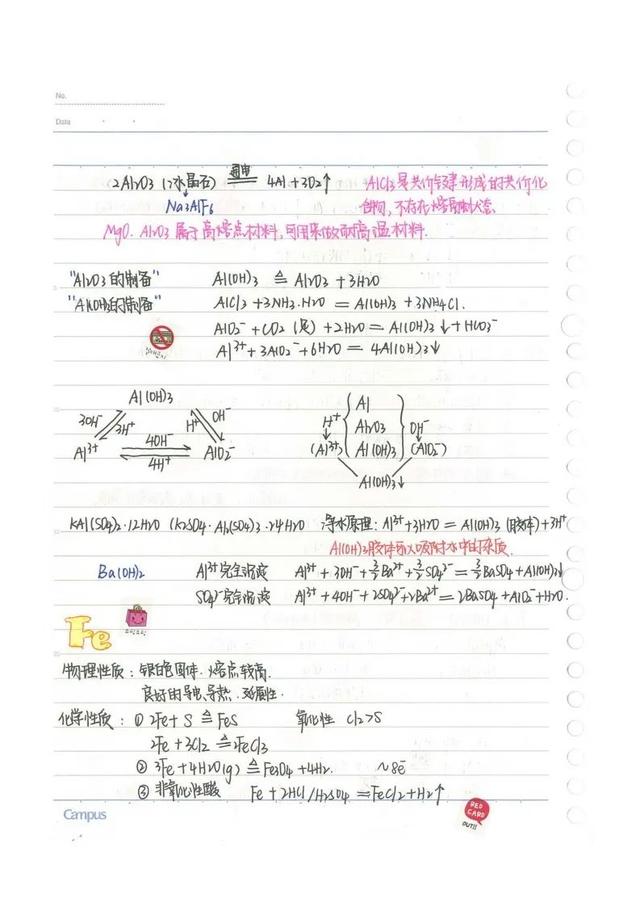 No.
Date
2Al2O3 (冰晶石) 通电 4Al + 3O2↑ AlCl3是共价键形成的共价化
Na3AlF6 合物,不存在熔融状态.
MgO. Al2O3 属于高熔点材料,可用来做耐高温材料.
"Al2O3的制备" Al(OH)3 ≜ Al2O3 + 3H2O
"Al(OH)3的制备" AlCl3 + 3NH3·H2O = Al(OH)3 + 3NH4Cl.
AlO2⁻ + CO2 (足) + 2H2O = Al(OH)3↓ + HCO3⁻
Al³⁺ + 3AlO2⁻ + 6H2O = 4Al(OH)3↓
Al(OH)3 Al
3OH⁻ 3H⁺ H⁺ OH⁻ H⁺ Al2O3 OH⁻
Al³⁺ 4OH⁻ 4H⁺ AlO2⁻ (Al³⁺) Al(OH)3 (AlO2⁻)
Al(OH)3↓
KAl(SO4)2·12H2O (K2SO4·Al2(SO4)3·24H2O 净水原理: Al³⁺ + 3H2O = Al(OH)3 (胶体) + 3H⁺
Al(OH)3胶体可以吸附水中的杂质.
Ba(OH)2 Al³⁺完全沉淀 Al³⁺ + 3OH⁻ + 3/2Ba²⁺ + 3/2SO4²⁻ = 3/2BaSO4 + Al(OH)3↓
SO4²⁻完全沉淀 Al³⁺ + 4OH⁻ + 2SO4²⁻ + 2Ba²⁺ = 2BaSO4 + AlO2⁻ + H2O.
Fe
物理性质: 银白色固体. 熔点较高.
良好的导电. 导热. 延展性.
化学性质: ① 2Fe + S ≜ FeS 氧化性 Cl2>S
2Fe + 3Cl2 ≜ 2FeCl3
② 3Fe + 4H2O(g) ≜ Fe3O4 + 4H2. ~8e⁻
③ 非氧化性酸 Fe + 2HCl/H2SO4 = FeCl2 + H2↑
Campus
RED CARD
OUT!!